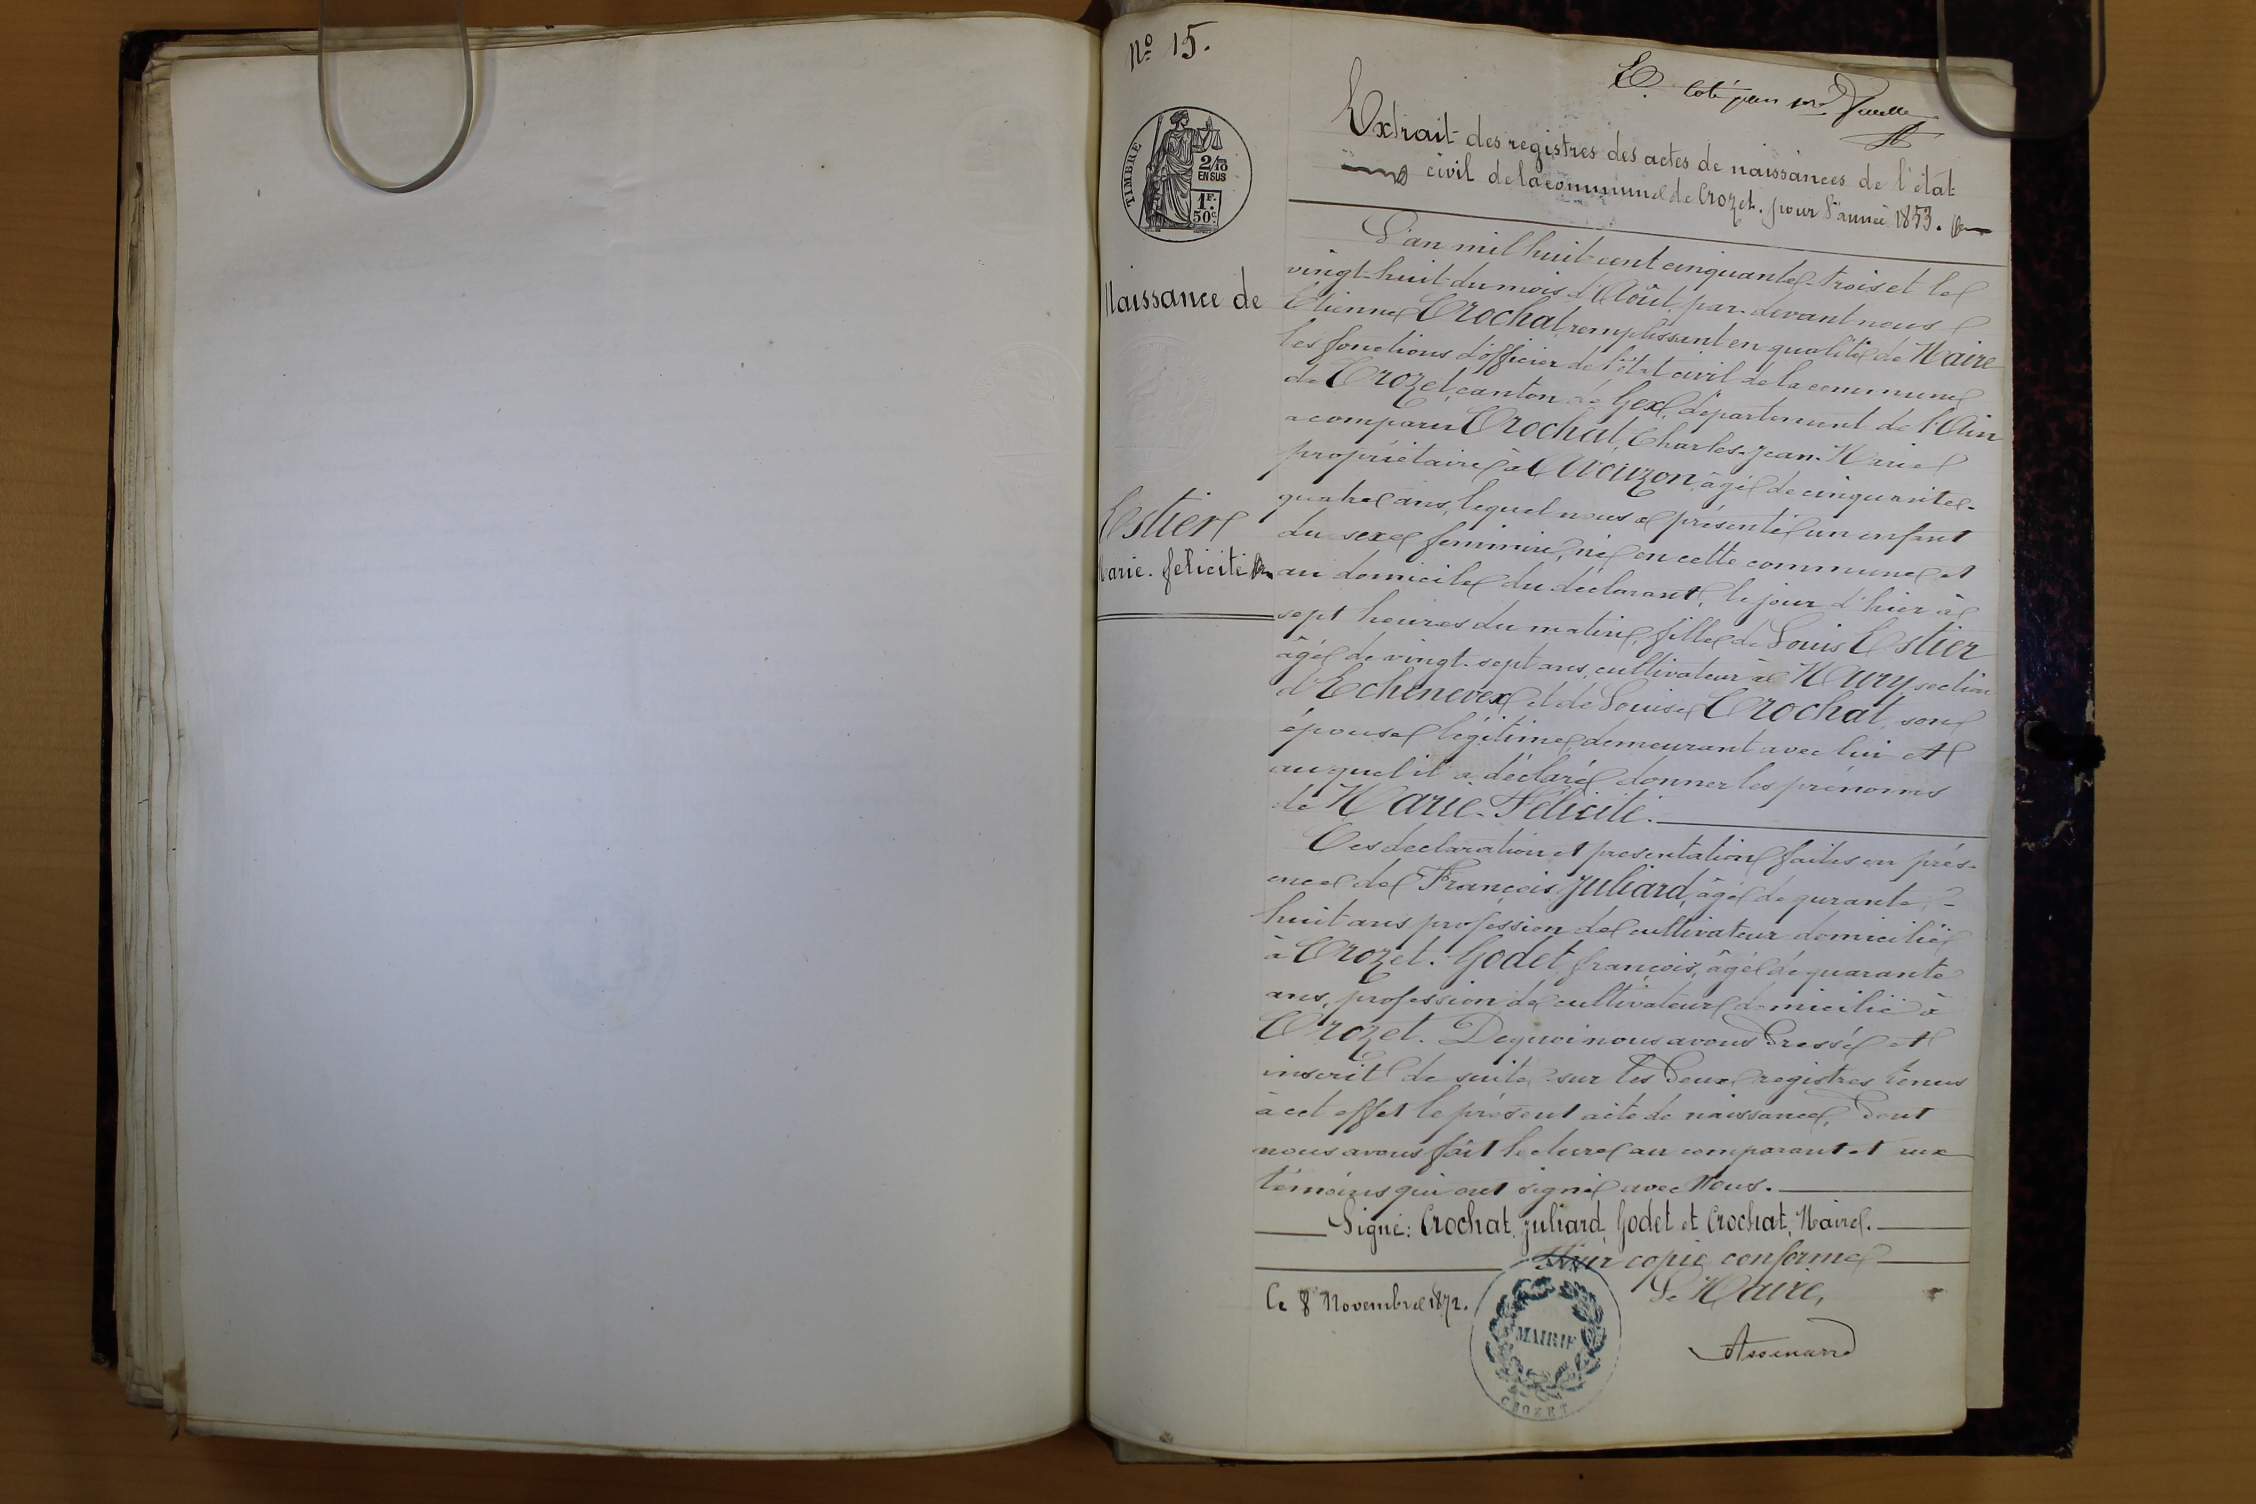 Nº 15.
TIMBRE
2/10
EN SUS
1F.
50c.
Extrait des registres des actes de naissances de l'état
civil de la commune de Crozet. pour l'année 1853.
Naissance de
Estier
Marie. félicité
L'an mil huit cent cinquante-trois et le
vingt-huit du mois d'Août, par-devant nous
Etienne Crochat, remplissant en qualité de Maire
les fonctions d'officier de l'état civil de la commune
de Crozet, canton de Gex, département de l'Ain
a comparu Crochat, Charles-Jean-Marie
propriétaire à Avouzon, âgé de cinquante-
quatre ans, lequel nous a présenté un enfant
du sexe féminin, né en cette commune et
au domicile du déclarant, le jour d'hier à
sept heures du matin, fille de Louis Estier
âgé de vingt-sept ans, cultivateur à Maury, section
d'Echenevex et de Louise Crochat, son
épouse légitime, demeurant avec lui et
auquel il a déclaré donner les prénoms
de Marie-Félicité.
Ces declaration et presentation faites en prés-
ence de François Juliard, âgé de qurante-
huit ans profession de cultivateur domicilié
à Crozet. Godet françois, âgé de quarante
ans, profession de cultivateur domicilié à
Crozet. De quoi nous avons dressé et
inscrit de suite sur les deux registres tenus
à cet effet le présent acte de naissance, dont
nous avons fait lecture au comparant et aux
témoins qui ont signé avec Nous.
Signé: Crochat, Juliard, Godet et Crochat, Maire.
Pour copie conforme
Ce 8 Novembre 1872.
Le Maire,
MAIRIE
CROZET